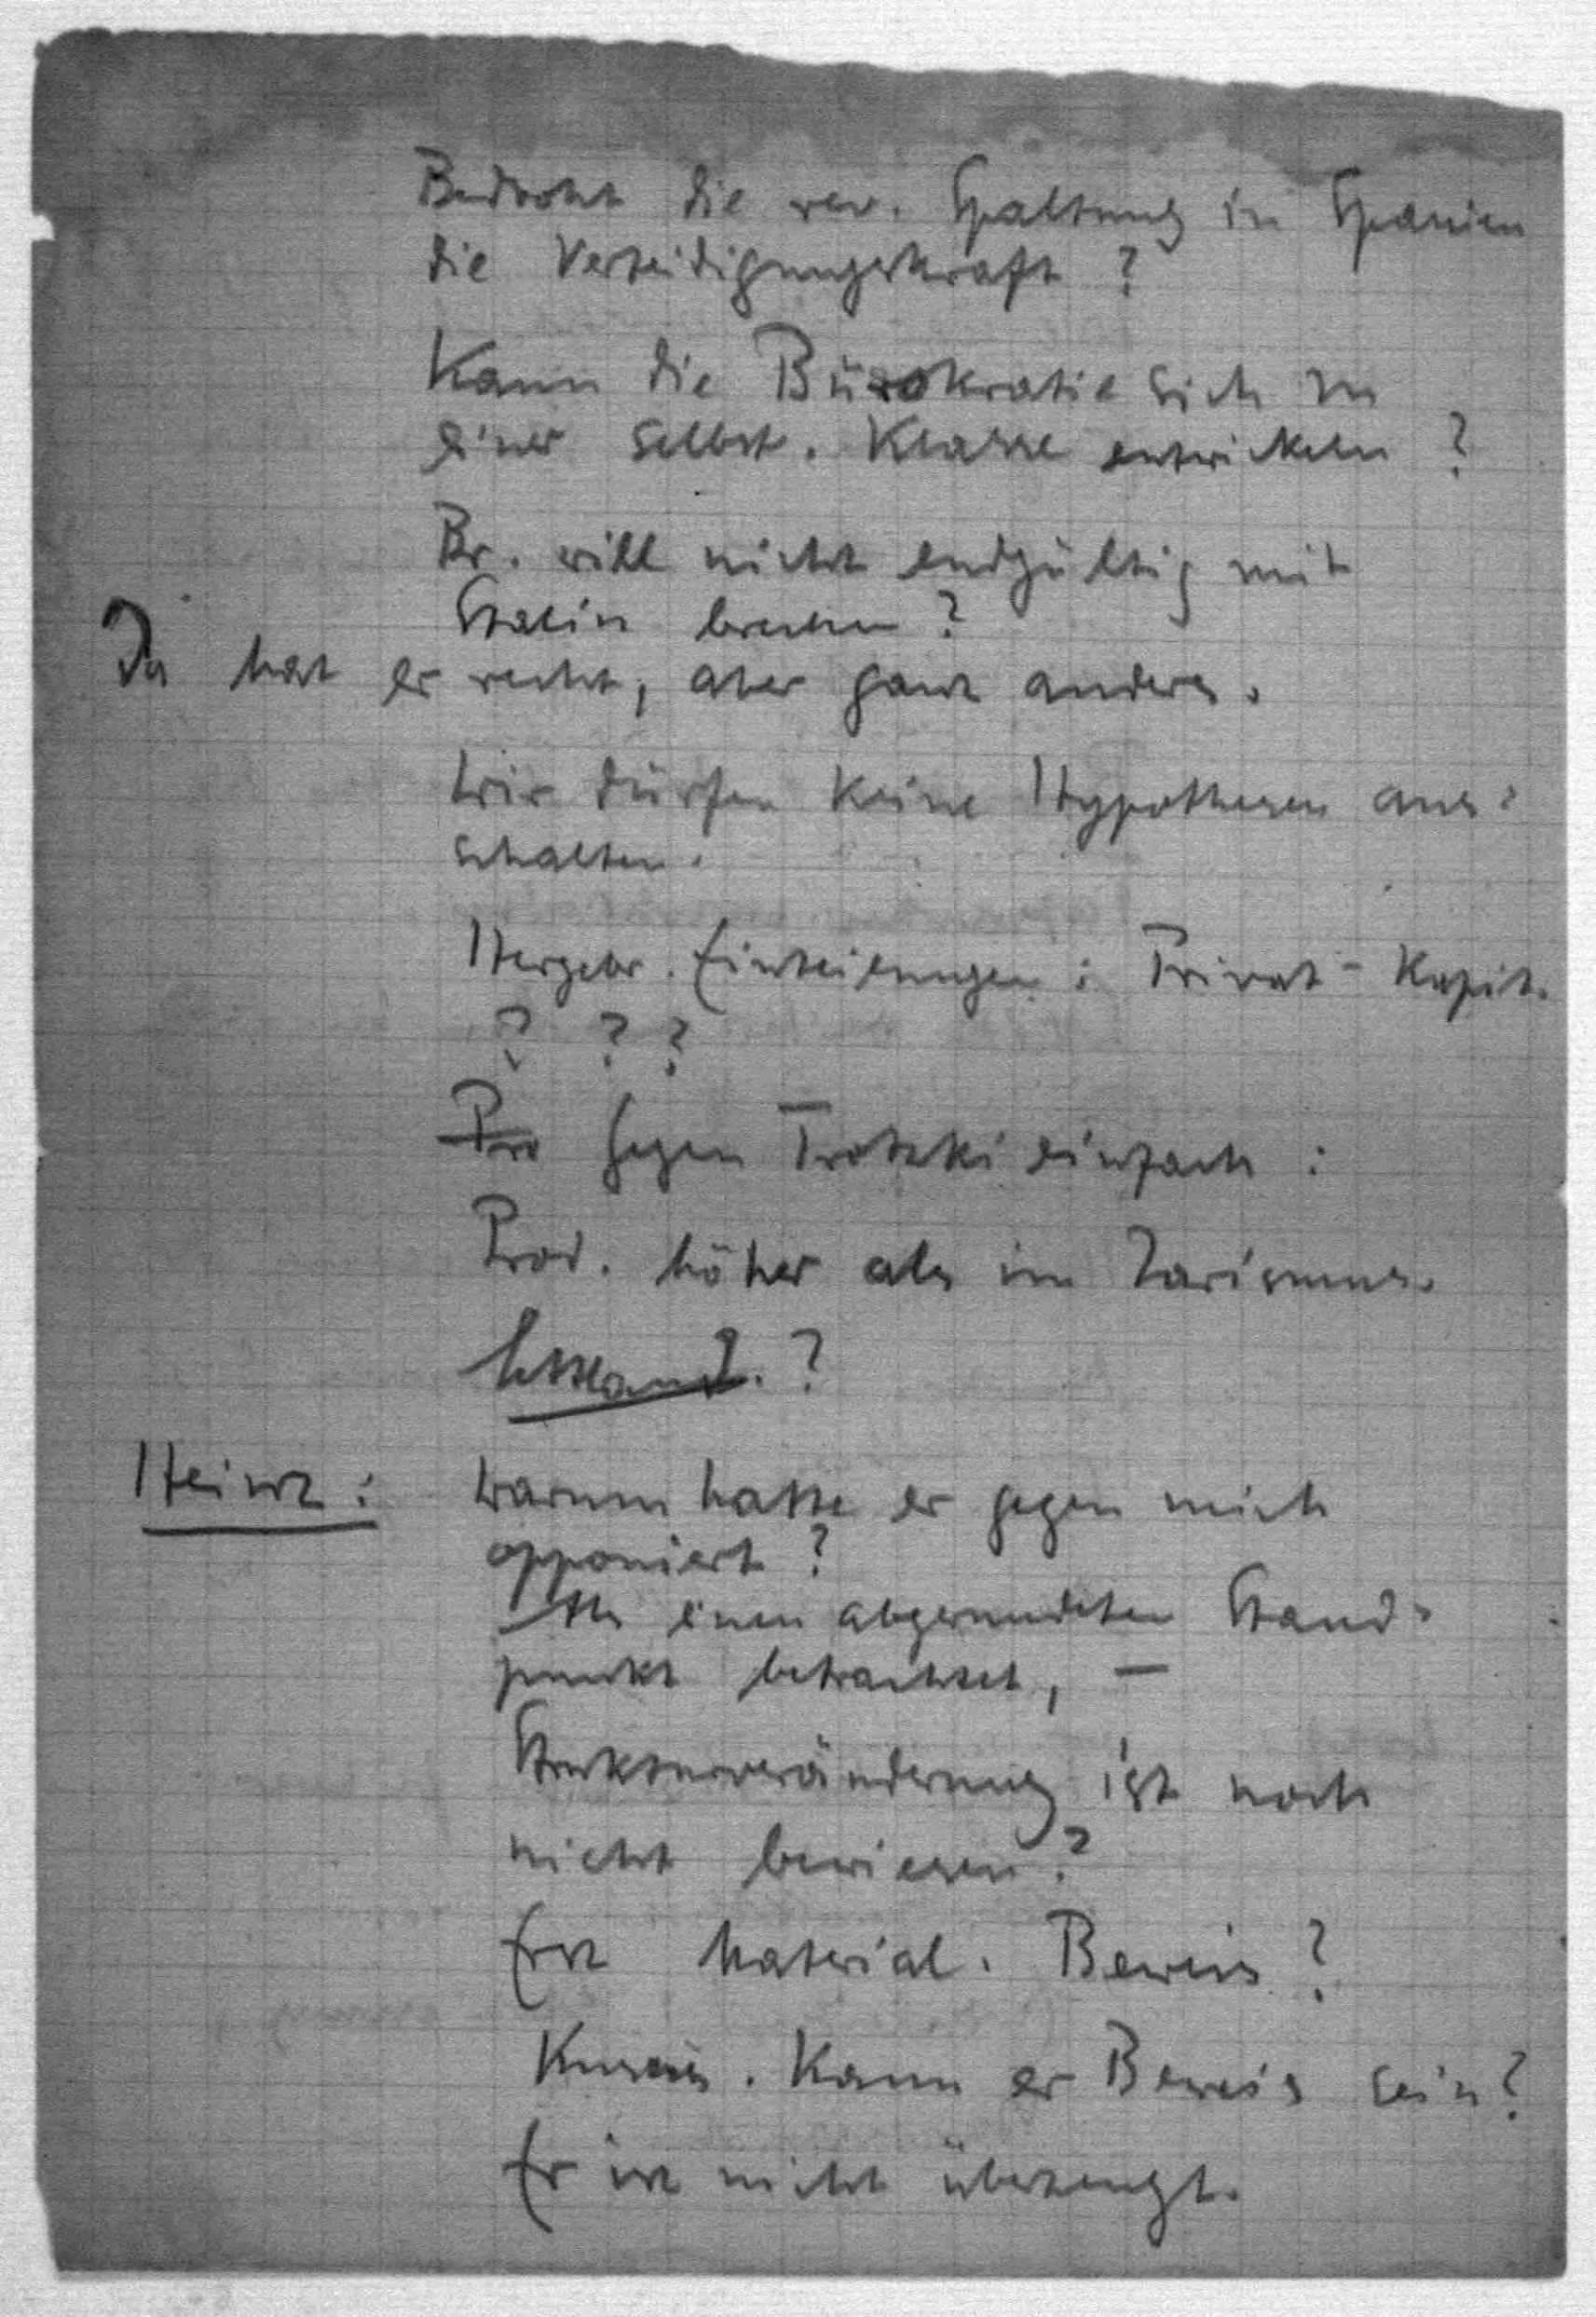 Bedroht die rev. Spaltung in Spanien
die Verteidigungskraft ?
Kann die Bürokratie sich zu
einer selbst. Klasse entwickeln ?
Br. will nicht endgültig mit
Stalin brechen ?
Da hat er recht, aber ganz anders.
Wir dürfen keine Hypothesen aus-
schalten.
Hergebr. Einteilungen : Privat - Kapit.
? ? ?
Pro Gegen Trotzki einfach :
Prod. höher als im Zarismus.
?
Heinz : Warum hatte er gegen mich
opponiert ?
Als einen abgerundeten Stand-
punkt betrachtet, —
Strukturveränderung ist noch
nicht bewiesen ?
Erst Material. Beweis ?
Kann er Beweis sein ?
Er ist nicht überzeugt.